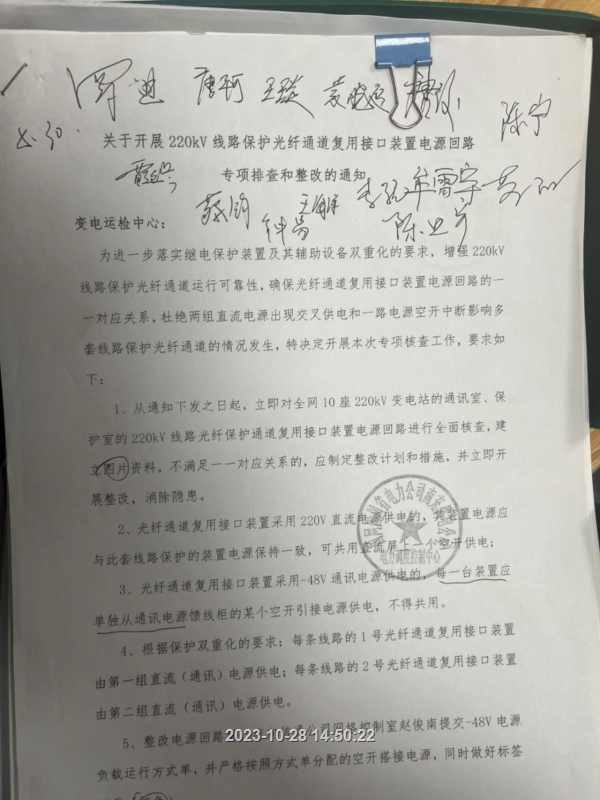 罗迪 唐珂 王琰 陈宁
5.30.
关于开展 220kV 线路保护光纤通道复用接口装置电源回路
专项排查和整改的通知
钟岩
变电运检中心：
为进一步落实继电保护装置及其辅助设备双重化的要求，增强 220kV
线路保护光纤通道运行可靠性，确保光纤通道复用接口装置电源回路的一
一对应关系，杜绝两组直流电源出现交叉供电和一路电源空开中断影响多
套线路保护光纤通道的情况发生，特决定开展本次专项核查工作，要求如
下：
1、从通知下发之日起，立即对全网 10 座 220kV 变电站的通讯室、保
护室的 220kV 线路光纤保护通道复用接口装置电源回路进行全面核查，建
立图片资料，不满足一一对应关系的，应制定整改计划和措施，并立即开
展整改，消除隐患。
2、光纤通道复用接口装置采用 220V 直流电源供电的，其装置电源应
与此套线路保护的装置电源保持一致，可共用直流屏上一个空开供电；
电力调度控制中心
3、光纤通道复用接口装置采用-48V 通讯电源供电的，每一台装置应
单独从通讯电源馈线柜的某个空开引接电源供电，不得共用。
4、根据保护双重化的要求：每条线路的 1 号光纤通道复用接口装置
由第一组直流（通讯）电源供电；每条线路的 2 号光纤通道复用接口装置
由第二组直流（通讯）电源供电。
5、整改电源回路 公司网络控制室赵俊南提交-48V 电源
2023-10-28 14:50:22
负载运行方式单，并严格按照方式单分配的空开搭接电源，同时做好标签